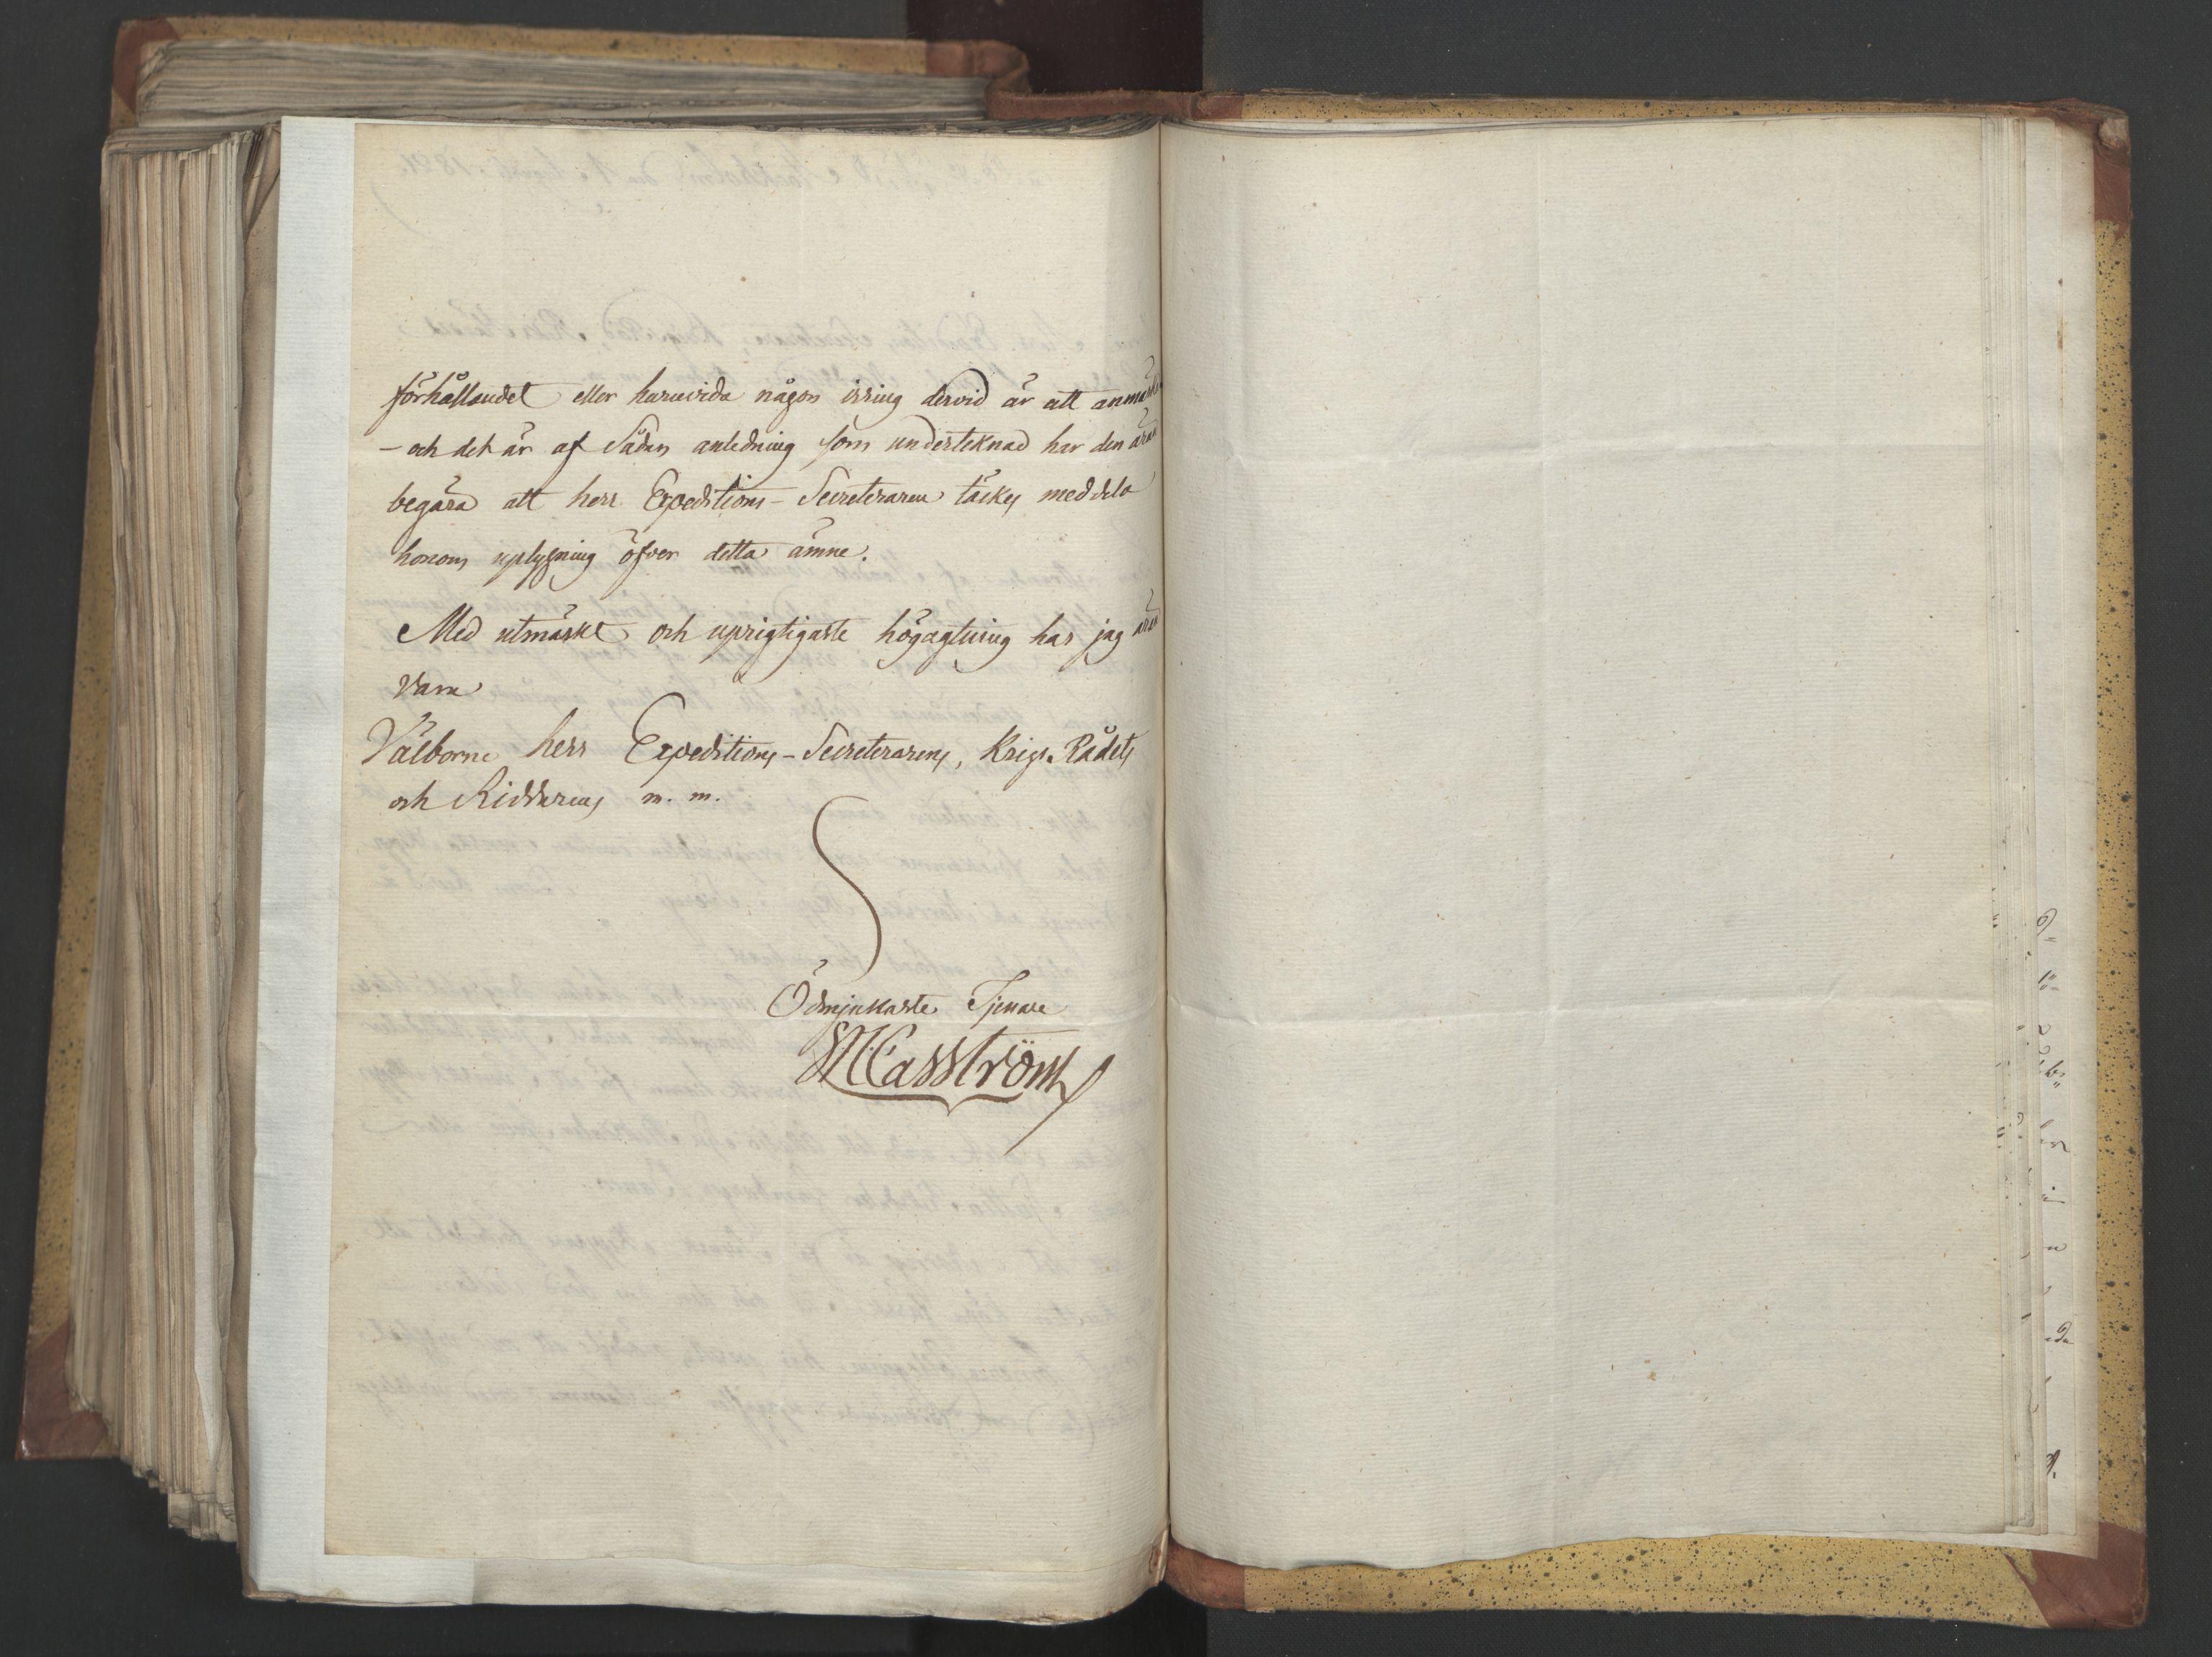 förhållandet eller huruvida någon irring dervid är att anmärka
- och det är af sådan anledning som undertecknad har den äran
begära att herr Expeditions-Secreteraren täckes meddela
honom uplysning öfver detta ämne.
Med utmärkt och uprigtigaste högagtning har jag äran
vara
Välborne herr Expeditions-Secreterarens, Krigs-Rådets
och Riddarens m. m.
Ödmjukaste Tjenare
Casström